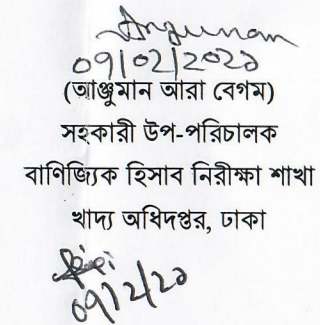 Anguman
09/02/2021
(আঞ্জুমান আরা বেগম)
সহকারী উপ-পরিচালক
বাণিজ্যিক হিসাব নিরীক্ষা শাখা
খাদ্য অধিদপ্তর, ঢাকা
09/2/21